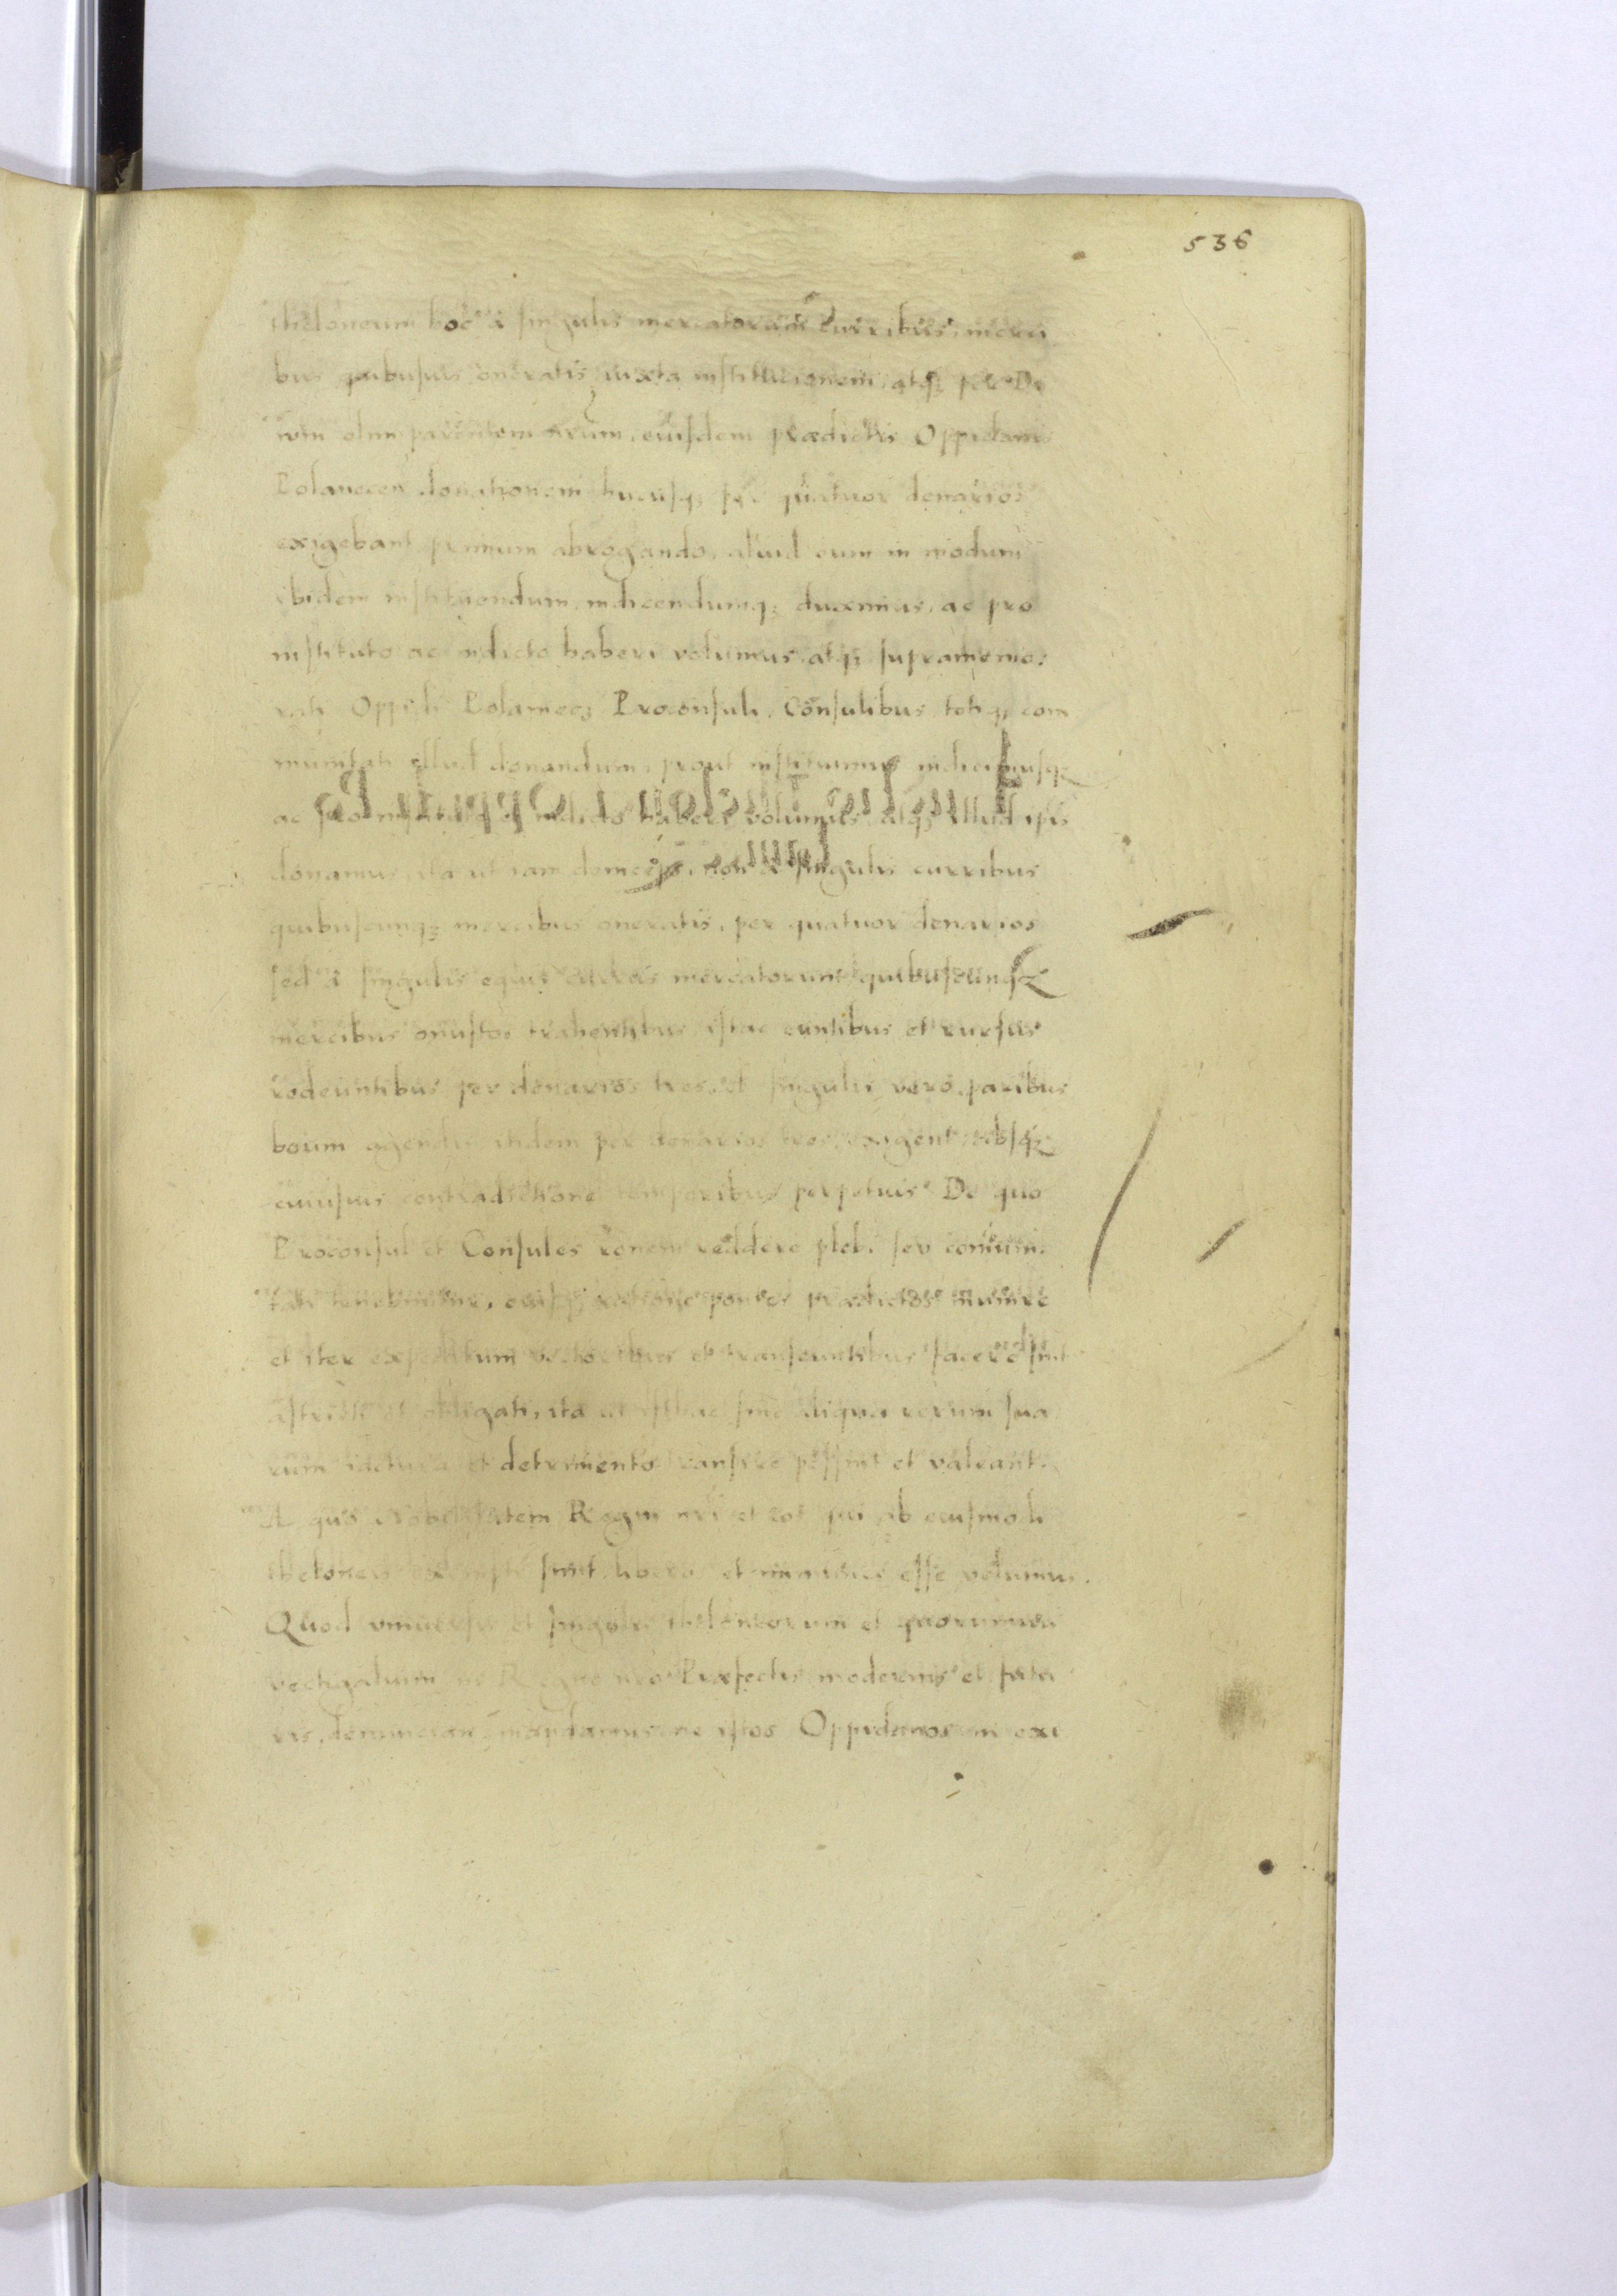 536
theloneum hoc a singulis mercatorum curribus, merci
bus quibusuis oneratis iuxta institutionem, atq; per Di
vum olim parentem nrum, eiusdem prædictis Oppidanis
Bolanecen donationem hucusq; per quatuor denarios
exigebant primum abrogando, aliud cum in modum
ibidem instituendum, indicendumq; duximus, ac pro
instituto ac indicto haberi volumus atq; supramemo:
rati Oppidi Bolamecz Proconsuli, Consulibus totiq; com
munitati illud donandum, prout instituimus indicimusq;
ac pro instituto et indicto haberi volumus, atq; illud ipsis
donamus, ita ut iam deinceps, non a singulis curribus
quibuscunq; mercibus oneratis, per quatuor denarios
sed a singulis equis currus mercatorum quibuscunq;
mercibus onustos trahentibus istac euntibus et rursus
redeuntibus per denarios tres, et singulis vero paribus
boum agendis itidem per denarios tres exigent absq;
cuiusuis contradictione temporibus perpetuis. De quo
Proconsul et Consules ronem reddere plebi seu comuni:
tati tenebuntur, eiusq; ratione pontes prædictos munire
et iter expeditum vectoribus et transeuntibus facere sint
astricti et obligati, ita ut isthac sine aliqua rerum sua
rum iactura et detrimento transire possint et valeant.
A quo Nobilitatem Regni nri et eos qui ab eiusmodi
theloneis exempti sunt, liberos et immunes esse volumus.
Quod vniuersis et singulis theloneorum et quorumuis
vectigalium in Regno nro Præfectis modernis et futu
ris, denuncian mandamus ne istos Oppidanos in exi